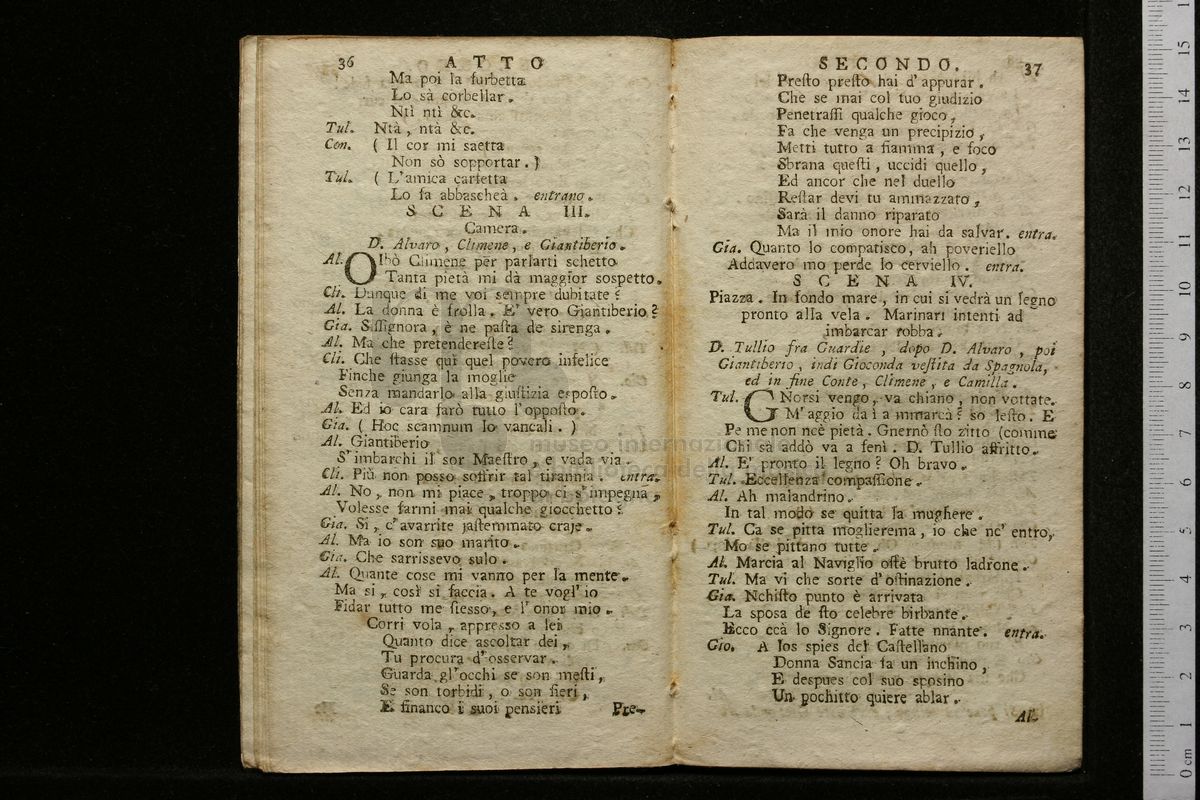 36 ATTO
Ma poi la furbetta
Lo sà corbellar.
Ntì ntì &c.
Tul. Ntà, ntà &c.
Con. (Il cor mi saetta
Non sò sopportar.)
Tul. (L'amica carſetta
Lo fa abbascheà. entrano.
SCENA III.
Camera.
D. Alvaro, Climene, e Giantiberio.
Al. OIbò Climene per parlarti schetto
Tanta pietà mi dà maggior sospetto.
Cli. Dunque di me voi sempre dubitate?
Al. La donna è frolla. E' vero Giantiberio?
Gia. Sissignora, è ne paſta de sirenga.
Al. Ma che pretendereſte?
Cli. Che ſtasse qui quel povero infelice
Finche giunga la moglie
Senza mandarlo alla giuſtizia esposto.
Al. Ed io cara farò tutto l'oppoſto.
Gia. (Hoc scamnum lo vancali.)
Al. Giantiberio
S'imbarchi il sor Maeſtro, e vada via.
Cli. Più non posso soffrir tal tirannia. entra.
Al. No, non mi piace, troppo ci s'impegna,
Volesse farmi mai qualche giocchetto?
Gia. Si, c'avarrite jaſtemmato craje.
Al. Ma io son suo marito.
Gia. Che sarrissevo sulo.
Al. Quante cose mi vanno per la mente.
Ma si, così si faccia. A te vogl'io
Fidar tutto me ſtesso, e l'onor mio.
Corri vola, appresso a lei
Quanto dice ascoltar dei,
Tu procura d'osservar.
Guarda gl'occhi se son meſti,
Se son torbidi, o son fieri,
E financo i suoi pensieri
Pre-
SECONDO. 37
Preſto preſto hai d'appurar.
Che se mai col tuo giudizio
Penetraſſi qualche gioco,
Fa che venga un precipizio,
Metti tutto a fiamma, e foco
Sbrana queſti, uccidi quello,
Ed ancor che nel duello
Reſtar devi tu ammazzato,
Sarà il danno riparato
Ma il mio onore hai da salvar. entra.
Gia. Quanto lo compatisco, ah poveriello
Addavero mo perde lo cerviello. entra.
SCENA IV.
Piazza. In fondo mare, in cui si vedrà un legno
pronto alla vela. Marinari intenti ad
imbarcar robba.
D. Tullio fra Guardie, dopo D. Alvaro, poi
Giantiberio, indi Gioconda veſtita da Spagnola,
ed in fine Conte, Climene, e Camilla.
Tul. GNorsi vengo, va chiano, non vottate.
M'aggio da ì a mmarcà? so leſto. E
Pe me non ncè pietà. Gnernò ſto zitto (comme
Chi sà addò va a fenì. D. Tullio affritto.
Al. E' pronto il legno? Oh bravo.
Tul. Eccellenza compaſſione.
Al. Ah malandrino.
In tal modo se quitta la mugliere.
Tul. Ca se pitta moglierema, io che nc' entro,
Mo se pittano tutte.
Al. Marcia al Naviglio oſtè brutto ladrone.
Tul. Ma vi che sorte d'oſtinazione.
Gia. Nchiſto punto è arrivata
La sposa de ſto celebre birbante.
Ecco ccà lo Signore. Fatte nnante. entra.
Gio. A los spies del Caſtellano
Donna Sancia fa un inchino,
E despues col suo sposino
Un pochitto quiere ablar.
Al.
museo internazionale
0 cm 1 2 3 4 5 6 7 8 9 10 11 12 13 14 15